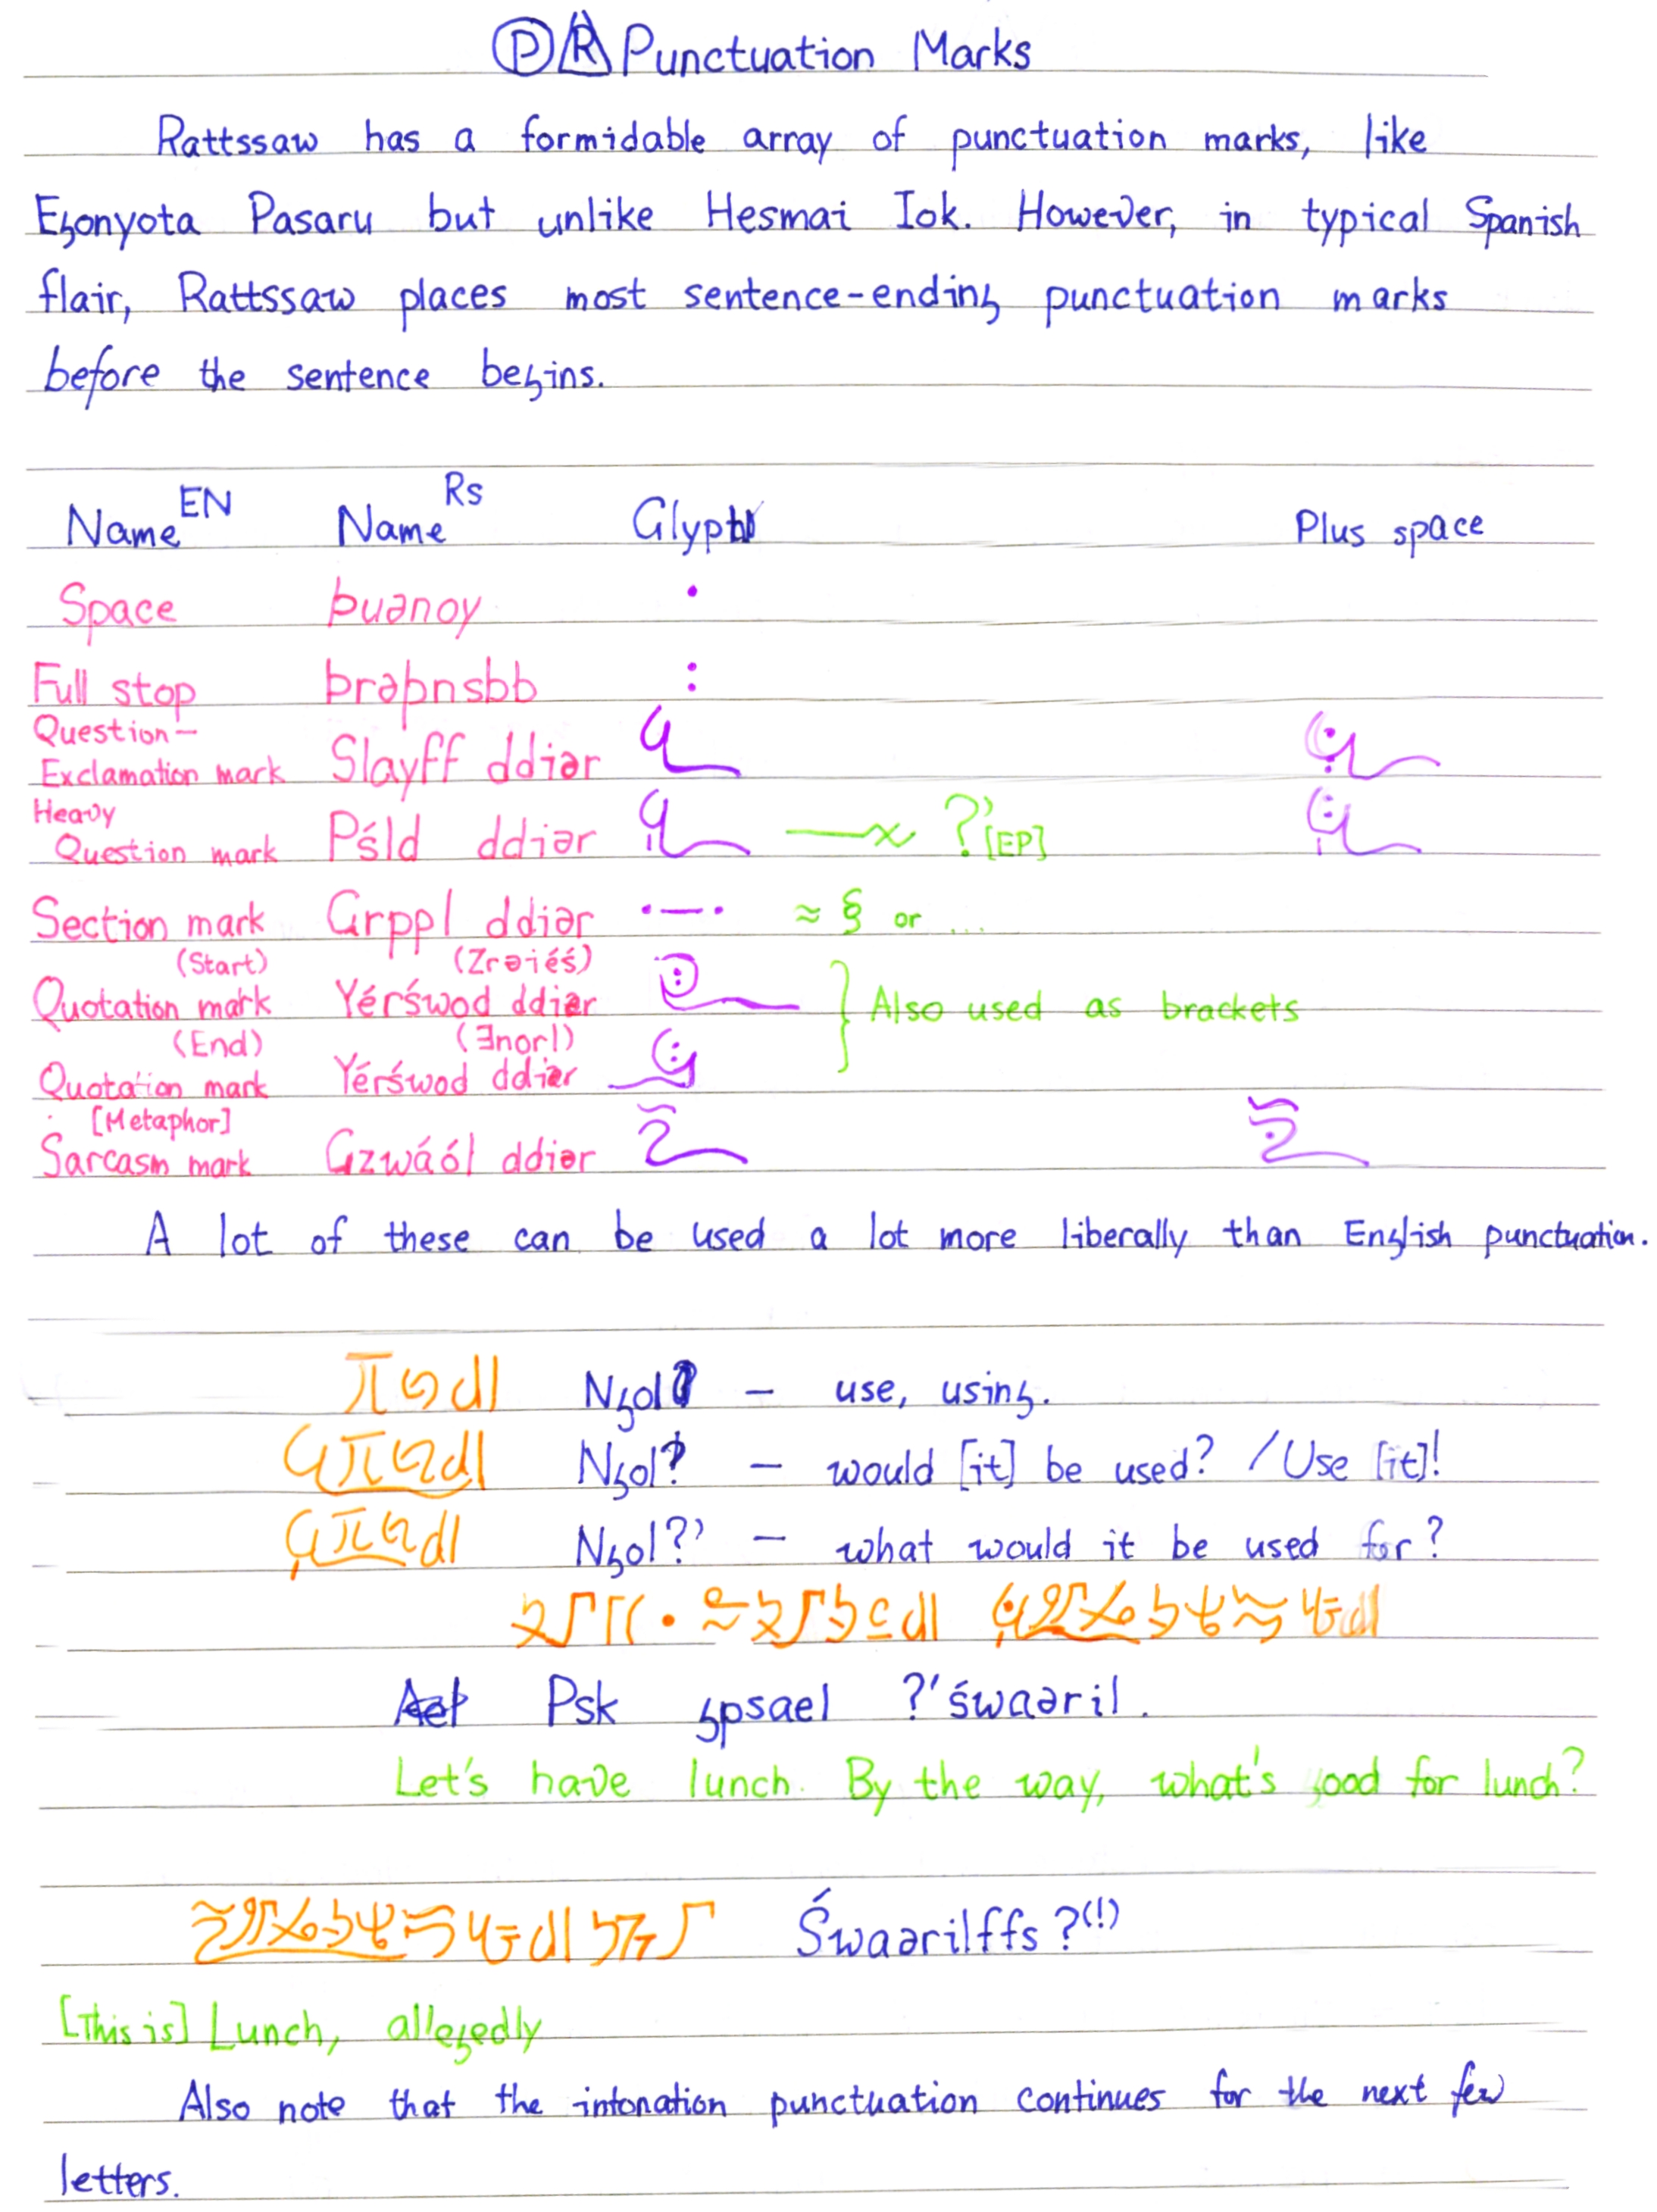 Ⓟ R Punctuation Marks
Rattssaw has a formidable array of punctuation marks, like
Egonyota Pasaru but unlike Hesmai Iok. However, in typical Spanish
flair, Rattssaw places most sentence-ending punctuation marks
before the sentence begins.
Name EN Name Rs Glyph Plus space
Space þuənoy ·
Full stop þrəþnsbb :
Question-
Exclamation mark Slayff ddiər
Heavy
Question mark Pśld ddiər ?’[EP]
Section mark Grppl ddiər ·—· ≈ § or ...
(Start) (Zrəiéś)
Quotation mark Yérśwod ddiər } Also used as brackets
(End) (Ǝnorl)
Quotation mark Yérśwod ddiər
[Metaphor]
Sarcasm mark Gzwáól ddiər
A lot of these can be used a lot more liberally than English punctuation.
Ngol – use, using.
Ngol? – would [it] be used? / Use [it]!
Ngol?’ – what would it be used for?
Psk gpsael ?’śwaəril.
Let's have lunch. By the way, what's good for lunch?
Śwaərilffs ?(!)
[This is] Lunch, allegedly
Also note that the intonation punctuation continues for the next few
letters.